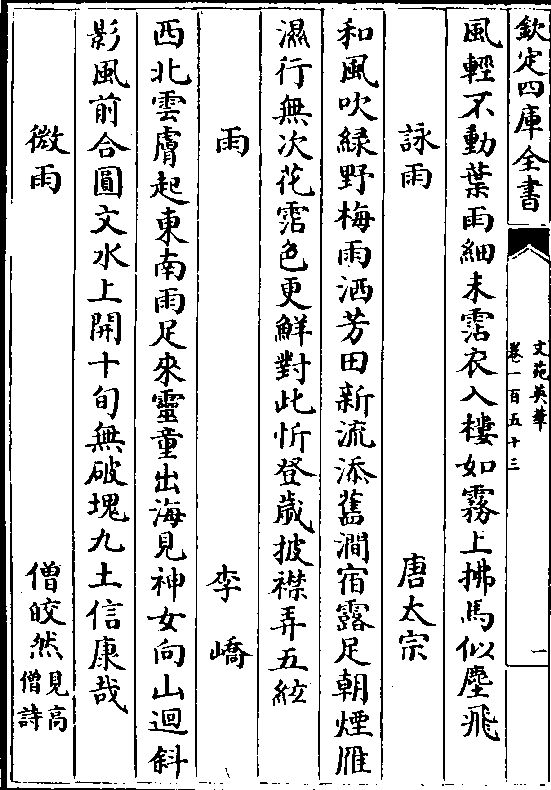 欽定四庫全書
文苑英華
卷一百五十三
一
風輕不動葉雨細未霑衣入樓如霧上拂馬似塵飛
詠雨 唐太宗
和風吹緑野梅雨洒芳田新流添舊澗宿露足朝煙雁
濕行無次花霑色更鮮對此忻登歲披襟弄五絃
雨 李嶠
西北雲膚起東南雨足來靈童出海見神女向山迴斜
影風前合圓文水上開十旬無破塊九土信康哉
微雨 僧皎然見高僧詩